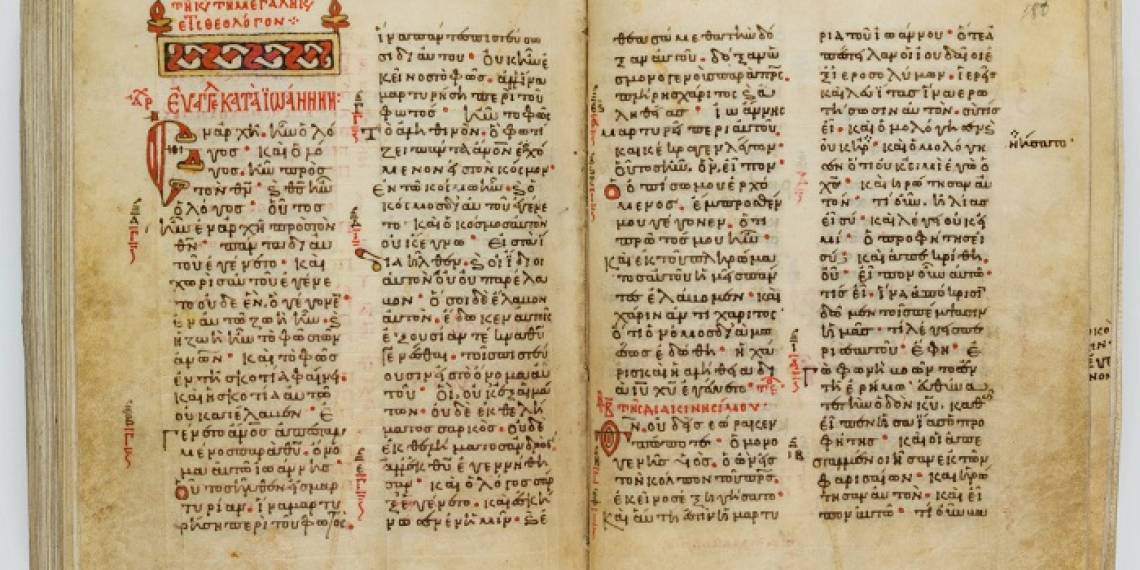 τῆ κυ τῆ μεγάλη κυ
εἰς τ θεολόγον
Εὐαγγ κατὰ ϊωάννην:
Εν ἀρχῆ ἦν ὁ λό
γος· καὶ ὁ λό
γος, ἦν πρὸς
τὸν θν· ϗ θς ἦν
ὁ λόγος· οὗτος
ἦν ἐν ἀρχῆ πρὸς τὸν
θν· πάντα δι αυ
τοῦ ἐγένετο· καὶ
χωρὶς αυτοῦ ἐγένε
το ουδὲ ἕν, ὃ γέγονεν·
ἐν αυτῶ ζωὴ ἦν· ϗ
ἡ ζωὴ ἦν τὸ φῶς τῶν
ανων· καὶ τὸ φῶς
ἐν τῆ σκοτία φαίνει·
καὶ ἡ σκοτία αυτὸ
ου κατέλαβεν· Ε
γένετο ανος ἀπεσταλ
μένος παρὰ θυ· ὄνο
μα αυτῶ ϊωάννης·
Οὗτος ἦλθεν εἰς μαρ
τυρίαν· ἵνα μαρτυ
ρήση περὶ τοῦ φωτός·
ἵνα πάντες πιστεύσω
σι δι αυτοῦ· Ουκ ἦν ἐ
κεῖνος τὸ φῶς· ἀλλ ἵνα
μαρτυρήση περὶ τοῦ
φωτός· ἦν τὸ φῶς
Τὸ ἀληθινόν· ὃ φωτί
ζει πάντα ανον ἐρχό
μενον εἰς τὸν κόσμον·
Εν τῶ κόσμω ἦν· ϗ ὁ
κόσμος δι αυτοῦ ἐγένε
το· καὶ ὁ κόσμος αυτὸν
ουκ ἔγνω· Εἰς τὰ ἴ
δια ἦλθεν· ϗ οἱ ἴδιοι
αυτὸν ου παρέλα
βον· ὅσοι δὲ ἔλαβον
αυτόν· ἔδωκεν αυτοῖς
ἐξουσίαν τέκνα θυ
γενέσθαι· τοῖς πιστεύ
ουσιν εἰς τὸ ὄνομα αυ
τοῦ· Οἳ, ουκ ἐξ αἱμά
των· ουδὲ ἐκ θελή
ματος σαρκός· ουδὲ
ἐκ θελήματος ανδρός·
ἀλλ ἐκ θυ ἐγεννήθη
σαν· καὶ ὁ λόγος σὰρ
ξ ἐγένετο· καὶ ἐσκή
νωσεν ἐν ἡμῖν· ϗ ἐ
θεασάμεθα τὴν δό
ξαν αυτοῦ· δόξαν ὡ
ς μονογενοῦς παρὰ πρς·
πλήρης χάριτος ϗ ἀ
ληθείας· Ιωάννης
μαρτυρεῖ περὶ αυτοῦ,
καὶ κέκραγε λέγων·
Οὗτος ἦν, ὃν εἶπον·
Ὁ ὀπίσω μου ἐρχό
μενος· ἔμπροσθέν
μου γέγονεν· ὅτι
πρῶτός μου ἦν·
Καὶ ἐκ τοῦ πληρώμα
τος αυτοῦ ἡμεῖς πάν
τες ἐλάβομεν· καὶ
χάριν ἀντὶ χάριτος·
ὅτι ὁ νόμος διὰ μω
σέως ἐδόθη· ἡ χά
ρις καὶ ἡ ἀλήθεια δι
ὰ ιυ χυ ἐγένετο· τε
τῆς διακινησίμου·
Θν, ουδεὶς ἑώρακεν
πώποτε· ὁ μονο
γενὴς υς· ὁ ὢν εἰς
τὸν κόλπον τοῦ πρς·
ἐκεῖνος ἐξηγήσατο·
Καὶ αὕτη ἐστὶν ἡ μαρτυ
ρία τοῦ ιωάννου· ὅτε ἀ
πέστειλαν οἱ ιουδαῖοι ἐ
ξ ιεροσολύμων· ἱερεῖς
καὶ λευΐτας ἵνα ἐρω
τήσωσιν αυτόν· συ τίς
εἶ· καὶ ὡμολόγησε ϗ
ουκ ἠρ· καὶ ὡμολόγη
νήσατο·
σεν ὅτι ουκ εἰμὶ ἐγὼ ὁ
χς· καὶ ἠρώτησαν αυ
τόν· τί οὖν. ἠλίας
εἶ σύ· καὶ λέγει ουκ εἰ
μί· ὁ προφήτης εἶ
σύ; καὶ ἀπεκρίθη.
οὔ· εἶπον οὖν αυτῶ·
τίς εἶ· ἵνα ἀπόκρισι
δῶμεν τοῖς πέμψασιν
ἡμᾶς· τί λέγεις πε
ρὶ σεαυτοῦ· ἔφη· ἐ
γὼ φωνὴ βοῶντος ἐν
τῆ ἐρήμω· εὐθύνα
τε τὴν ὁδὸν κυ, καθὼς
εἶπεν ἡσαΐας ὁ προ
φήτης· καὶ οἱ ἀπε
σταλμένοι ἦσαν ἐκ τῶν
φαρισαίων· καὶ ἠρώ
τησαν αυτόν· καὶ εἶ
πον αυτῶ· τί οὖν βα